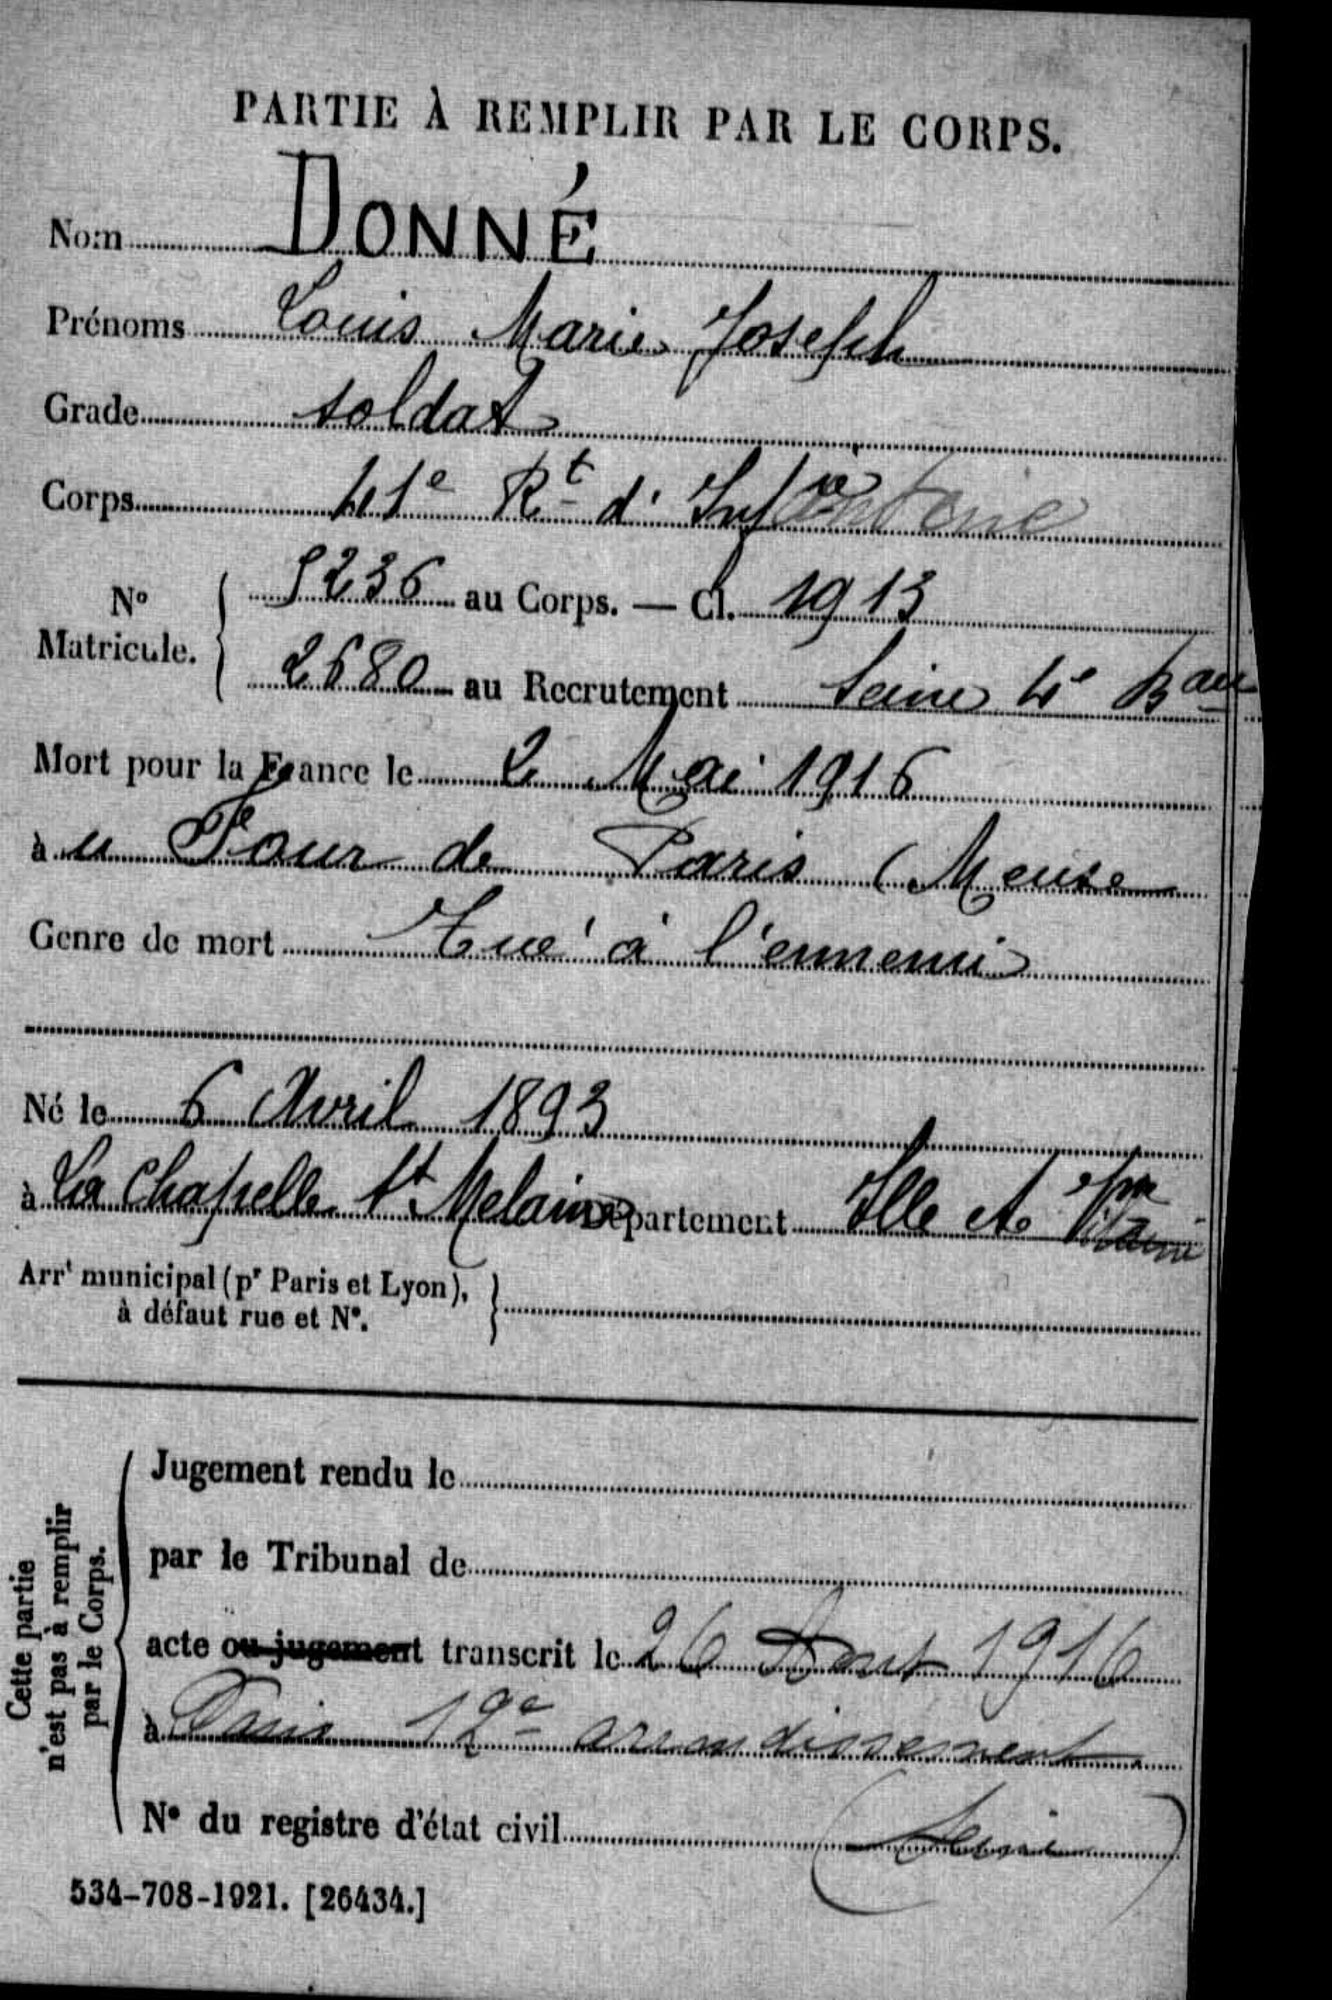 PARTIE À REMPLIR PAR LE CORPS.
Nom DONNÉ
Prénoms Louis Marie Joseph
Grade soldat
Corps 41e Rt d'Infanterie
No Matricule. { 5236 au Corps. — Cl. 1913
2680 au Recrutement Seine 4e Bau
Mort pour la France le 2 Mai 1916
à u Four de Paris (Meuse
Genre de mort Tué à l'ennemi
Né le 6 Avril 1893
à La Chapelle St Melaine Département Ille et Vilaine
Arrt municipal (pr Paris et Lyon), à défaut rue et No. }
Cette partie n'est pas à remplir par le Corps.
Jugement rendu le
par le Tribunal de
acte ou jugement transcrit le 26 Aout 1916
à Paris 12e arrondissement
No du registre d'état civil (Seine)
534-708-1921. [26434.]